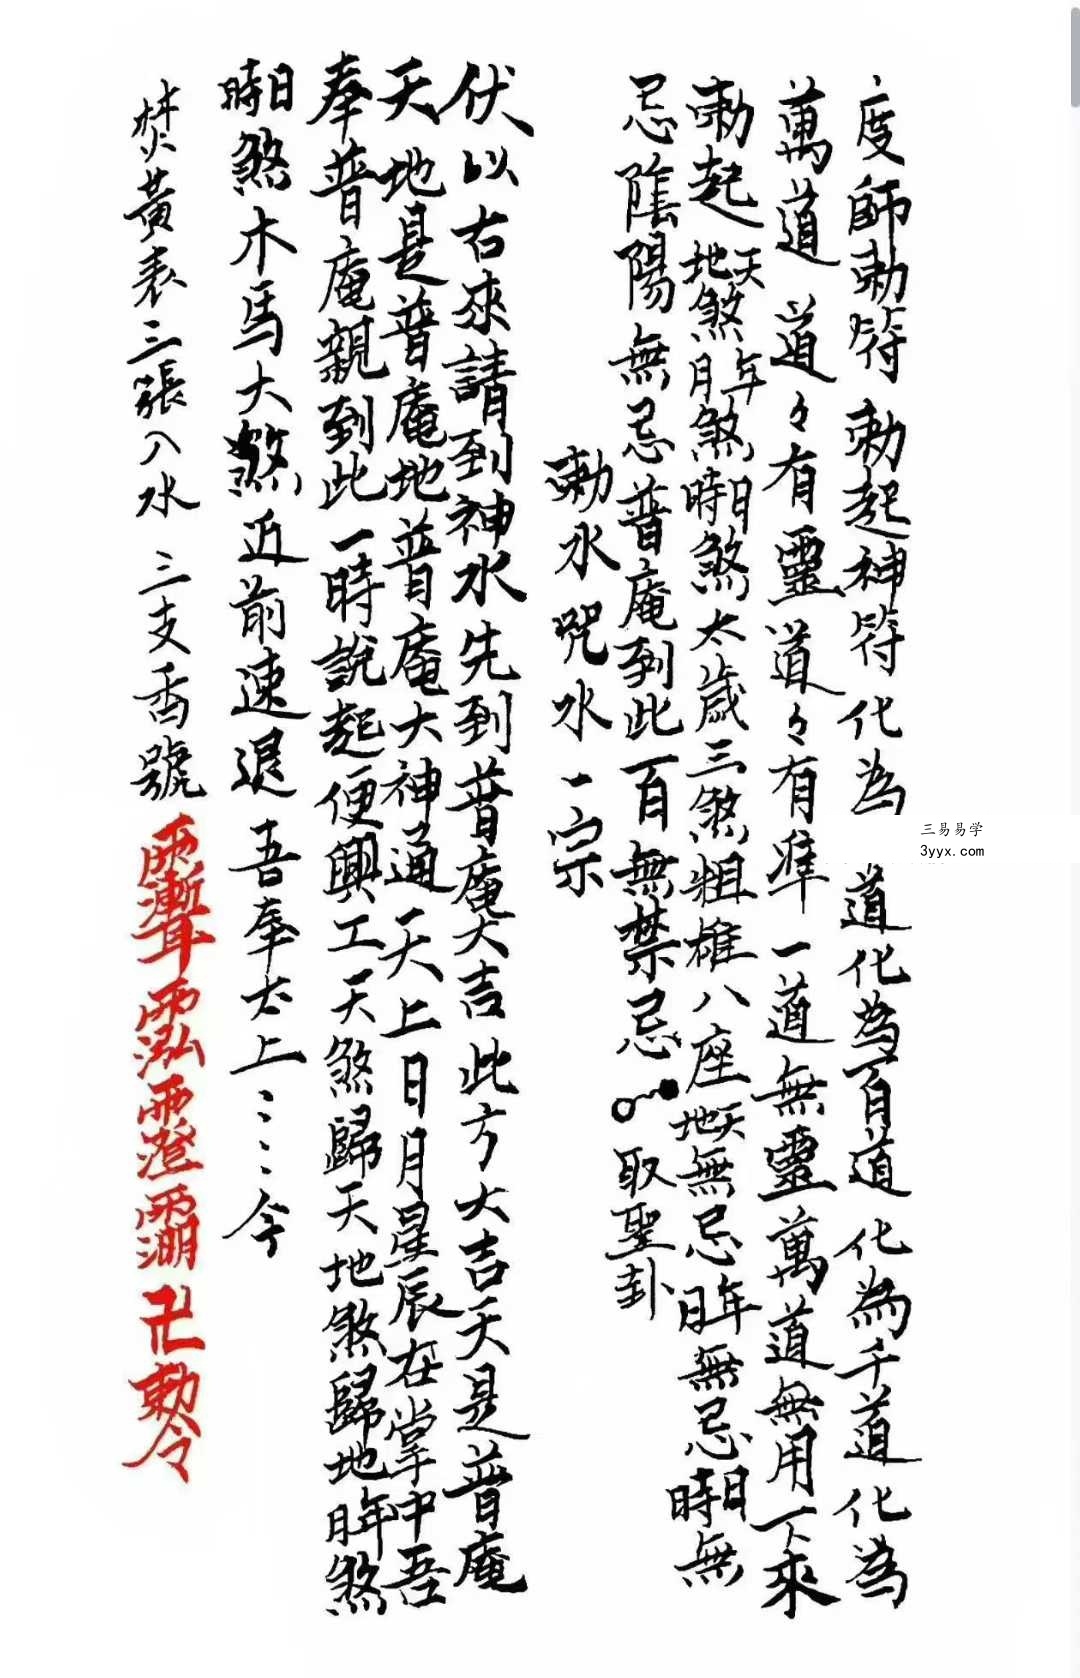 度師勅符勅起神符化為道化為百道化為千道化為
萬道道々有靈道々有準一道無靈萬道無用下來
勅起天地煞年月煞日時煞太歲三煞粗雄八座天地無忌年月無忌日時無
忌陰陽無忌普庵到此百無禁忌取聖卦
勅水咒水一宗
伏以右來請到神水先到普庵大吉此方大吉天是普庵
天地是普庵地普庵大神通天上日月星辰在掌中吾
奉普庵親到此一時說起便興工天煞歸天地煞歸地年月煞
日時煞木馬大煞近前速退吾奉太上:::令
焚黃表三張入水三支香號
卍勅令
三易易学
3yyx.com